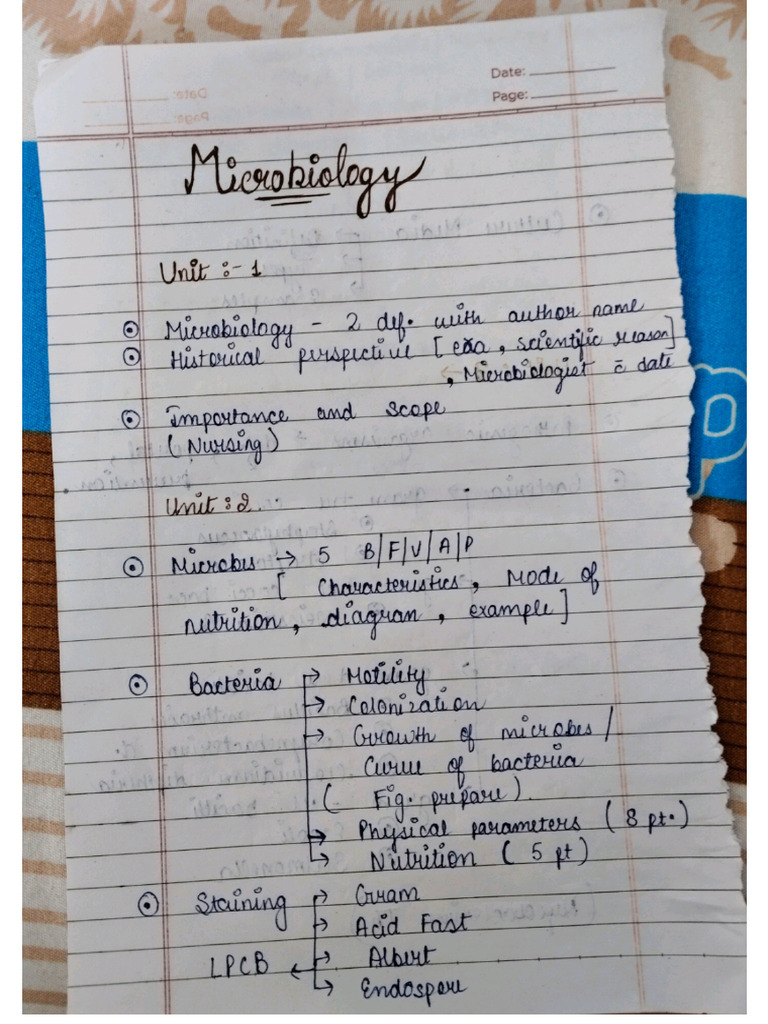 Date:
Page:
Microbiology
Unit :- 1
Microbiology - 2 def. with author name
Historical perspective [ era, scientific reason]
, Microbiologist c̄ date
Importance and scope
(Nursing)
Unit : 2.
Microbes → 5 B/F/V/A/P
[ Characteristics, Mode of
nutrition, diagram, example]
Bacteria → Motility
→ Colonization
→ Growth of microbes /
Curve of bacteria
( Fig. prepare)
→ Physical parameters ( 8 pt.)
→ Nutrition ( 5 pt)
Staining → Gram
→ Acid Fast
LPCB ← → Albert
→ Endospore